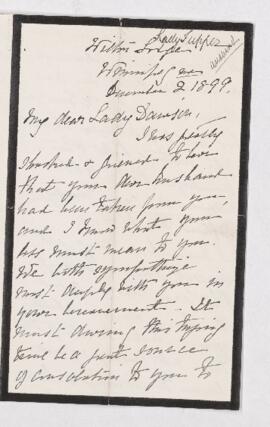 Lady Tupper
answered
Winnipeg
December 2 1899.
My dear Lady Dawson,
I was greatly
shocked & grieved to hear
that your dear husband
had been taken from you,
and I know what your
loss must mean to you.
We both sympathize
most deeply with you in
your bereavement. It
must during this trying
time be a great source
of consolation to you to